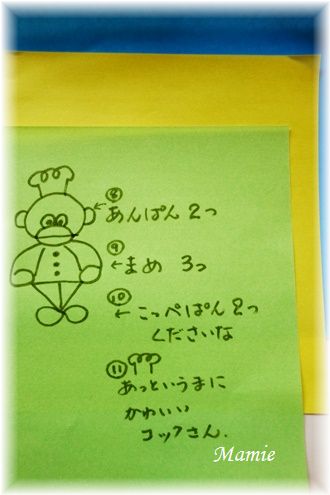 ⑧
←あんぱん 2つ
⑨
←まめ 3つ
⑩
←こっぺぱん 2つ
くださいな
⑪
あっというまに
かわいい
コックさん.
Mamie